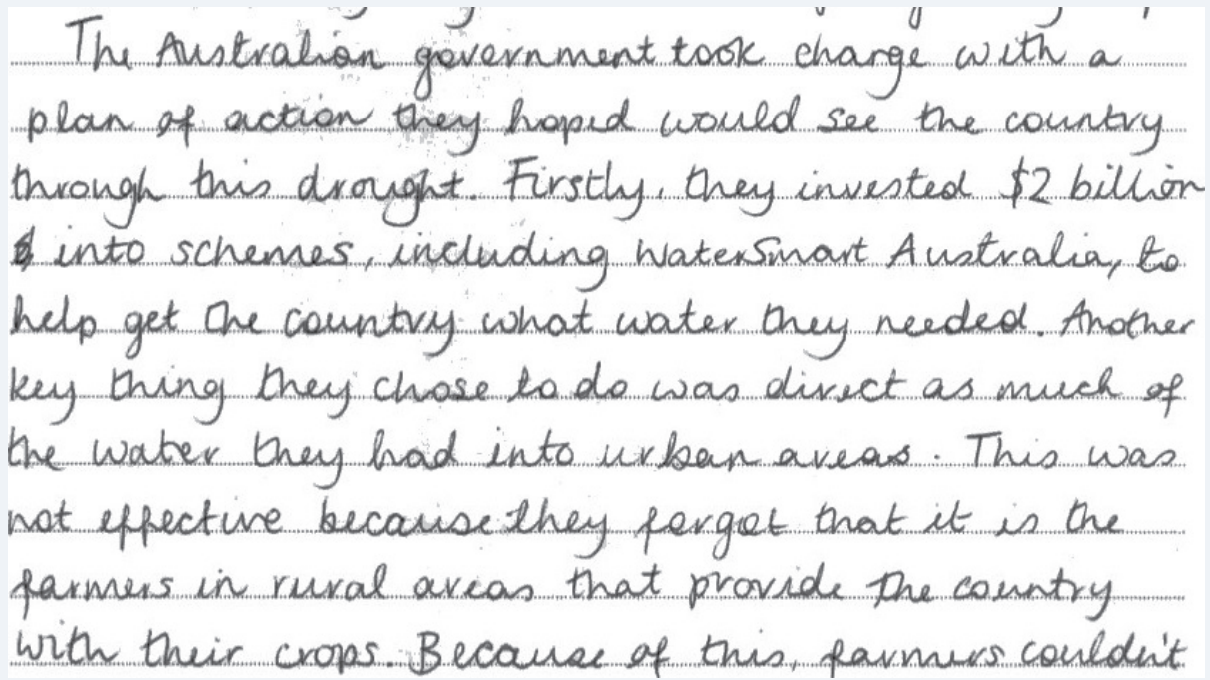 The Australian government took charge with a
plan of action they hoped would see the country
through this drought. Firstly, they invested $2 billion
into schemes, including WaterSmart Australia, to
help get the country what water they needed. Another
key thing they chose to do was direct as much of
the water they had into urban areas. This was
not effective because they forgot that it is the
farmers in rural areas that provide the country
with their crops. Because of this, farmers couldn't